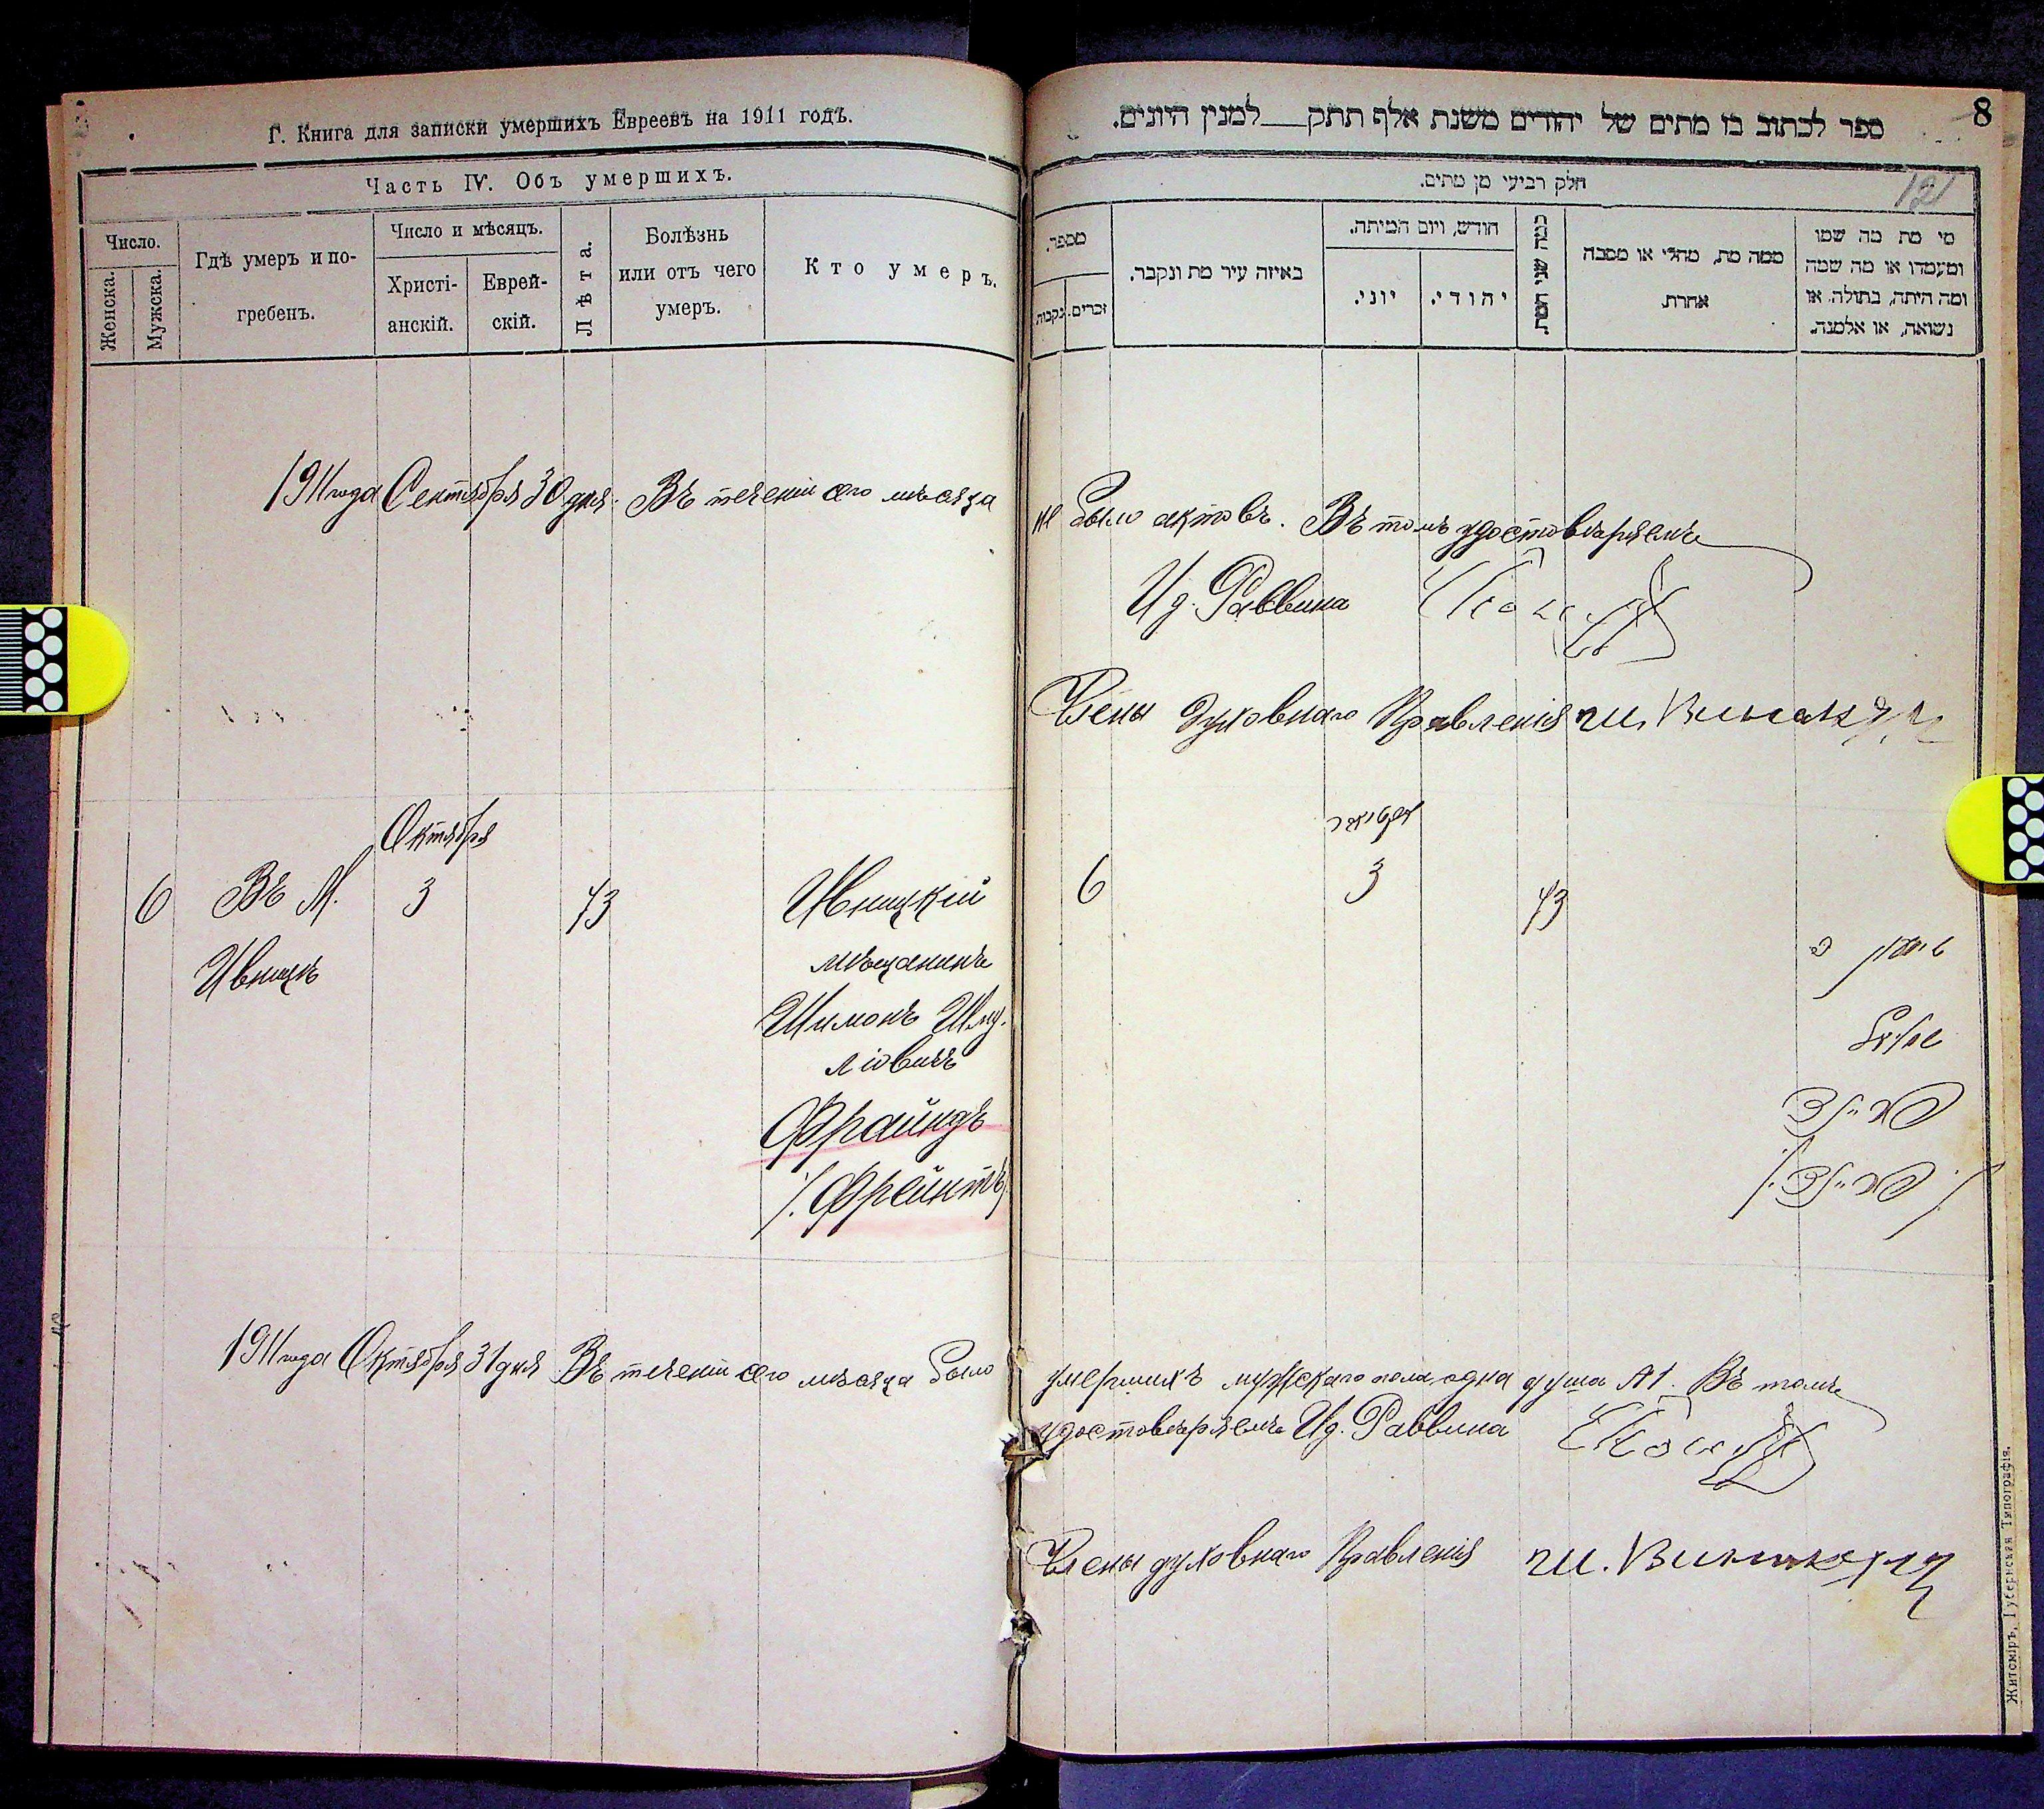 Г. Книга для записки умершихъ Евреевъ на 1911 годъ.
Часть IV. Объ умершихъ.
Число.
Женска.
Мужска.
Гдѣ умеръ и по-
гребенъ.
Число и мѣсяцъ.
Христі-
анскій.
Еврей-
скій.
Лѣта.
Болѣзнь
или отъ чего
умеръ.
Кто умеръ.
1911 года Сентября 30 дня. Въ теченіи сего мѣсяца
Октября
6 Въ М. 3 73 Ивницкій
Ивницѣ мѣщанинъ
Шимонъ Шму-
ліовичъ
Фрайндъ
/. Фрейнтъ/
1911 года Октября 31 дня Въ теченіи сего мѣсяца было
ספר לכתוב בו מתים של יהודים משנת אלף תתק___למנין היונים.
8
חלק רביעי מן מתים.
121
מספר.
נקבות
זכרים.
באיזה עיר מת ונקבר.
חודש, ויום המיתה.
יוני.
יהודי.
כמה שני המת.
ממה מת, מחלי או מסבה
אחרת.
מי מת מה שמו
ומעמדו או מה שמה
ומה היתה, בתולה. או
נשואה, או אלמנה.
не было актовъ. Въ томъ удостовѣряемъ
И д. Раввина
Члены Духовнаго Правленія Ш.
6 3 73
умершихъ мужскаго пола одна душа №1. Въ томъ
удостовѣряемъ Ид. Раввина
Члены духовнаго Правленія Ш.
Житоміръ, Губернская Типографія.